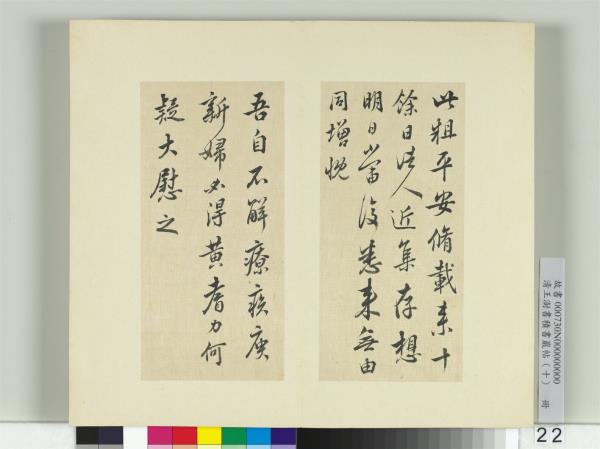 此粗平安脩載來十
餘日諸人近集存想
明日當復悉來無由
同增慨
吾自不解療疾庾
新婦必得黃耆力何
疑大慰之
故書 000730N000000000
清王澍書積書巖帖(十) 冊
22